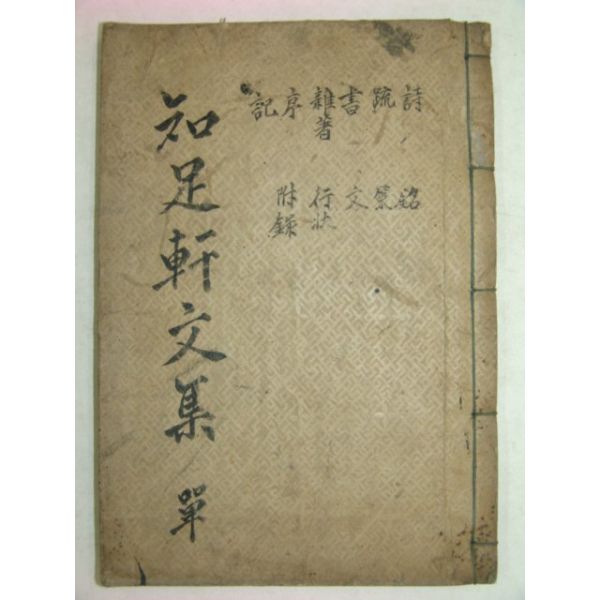 詩 疏 書 雜著 序 記
銘 祭 文 行狀 附錄
知足軒文集 單